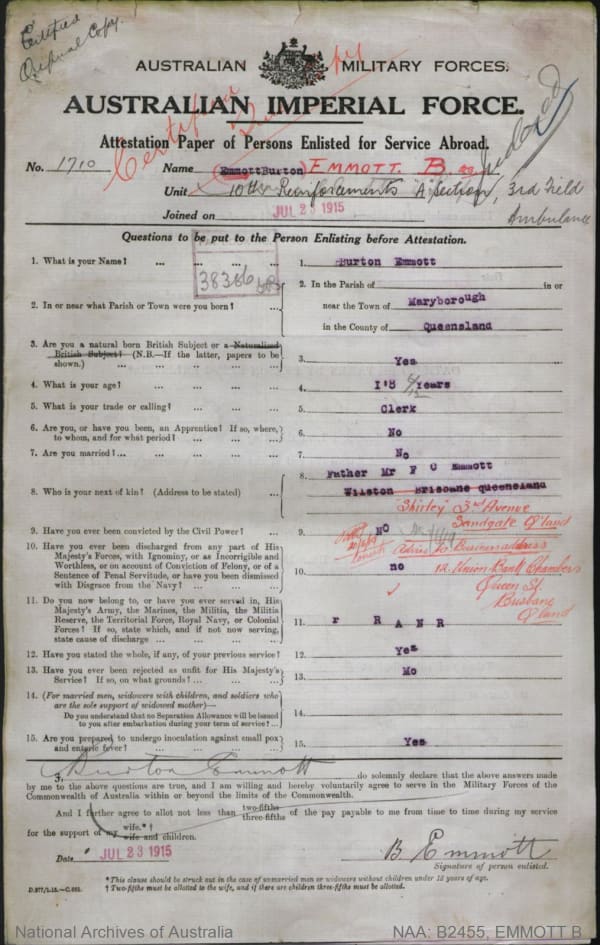 Certified
Original Copy.
AUSTRALIAN MILITARY FORCES.
AUSTRALIAN IMPERIAL FORCE.
Attestation Paper of Persons Enlisted for Service Abroad.
Indexed
No. 1710 Name Emmott Burton) EMMOTT. B.
Unit 10th Reinforcements "A" Section, 3rd Field Ambulance
Joined on JUL 23 1915
Questions to be put to the Person Enlisting before Attestation.
38386
1. What is your Name? ... ... ... ... 1. Burton Emmott
2. In or near what Parish or Town were you born? ... 2. In the Parish of in or
near the Town of Maryborough
in the County of Queensland
3. Are you a natural born British Subject or a Naturalised
British Subject? (N.B.—If the latter, papers to be
shown.) ... ... ... ... ... 3. Yes
4. What is your age? ... ... ... ... 4. 18 6/12 Years
5. What is your trade or calling? ... ... ... 5. Clerk
6. Are you, or have you been, an Apprentice? If so, where,
to whom, and for what period? ... ... ... 6. No
7. Are you married? ... ... ... ... ... 7. No
8. Who is your next of kin? (Address to be stated) ... 8. Father Mr F O Emmott
Wilston Brisbane Queensland
"Shirley" 3rd Avenue
Sandgate Q'land
9. Have you ever been convicted by the Civil Power? ... 9. NO
10. Have you ever been discharged from any part of His
Majesty's Forces, with Ignominy, or as Incorrigible and
Worthless, or on account of Conviction of Felony, or of a
Sentence of Penal Servitude, or have you been dismissed
with Disgrace from the Navy? ... ... ... 10. no
Business address
12 Union Bank Chambers
Queen St.
Brisbane
Q'land
11. Do you now belong to, or have you ever served in, His
Majesty's Army, the Marines, the Militia, the Militia
Reserve, the Territorial Force, Royal Navy, or Colonial
Forces? If so, state which, and if not now serving,
state cause of discharge ... ... ... ... 11. r R A N R
12. Have you stated the whole, if any, of your previous service? 12. Yes
13. Have you ever been rejected as unfit for His Majesty's
Service? If so, on what grounds? ... ... ... 13. No
14. (For married men, widowers with children, and soldiers who
are the sole support of widowed mother)—
Do you understand that no Separation Allowance will be issued
to you after embarkation during your term of service? ... 14.
15. Are you prepared to undergo inoculation against small pox
and enteric fever? ... ... ... ... 15. Yes
I, Burton Emmott do solemnly declare that the above answers made
by me to the above questions are true, and I am willing and hereby voluntarily agree to serve in the Military Forces of the
Commonwealth of Australia within or beyond the limits of the Commonwealth.
And I further agree to allot not less than two-fifths three-fifths of the pay payable to me from time to time during my service
for the support of my wife.*† wife and children.
Date JUL 23 1915 B. Emmott
Signature of person enlisted.
*This clause should be struck out in the case of unmarried men or widowers without children under 18 years of age.
† Two-fifths must be allotted to the wife, and if there are children three-fifths must be allotted.
National Archives of Australia NAA: B2455, EMMOTT B